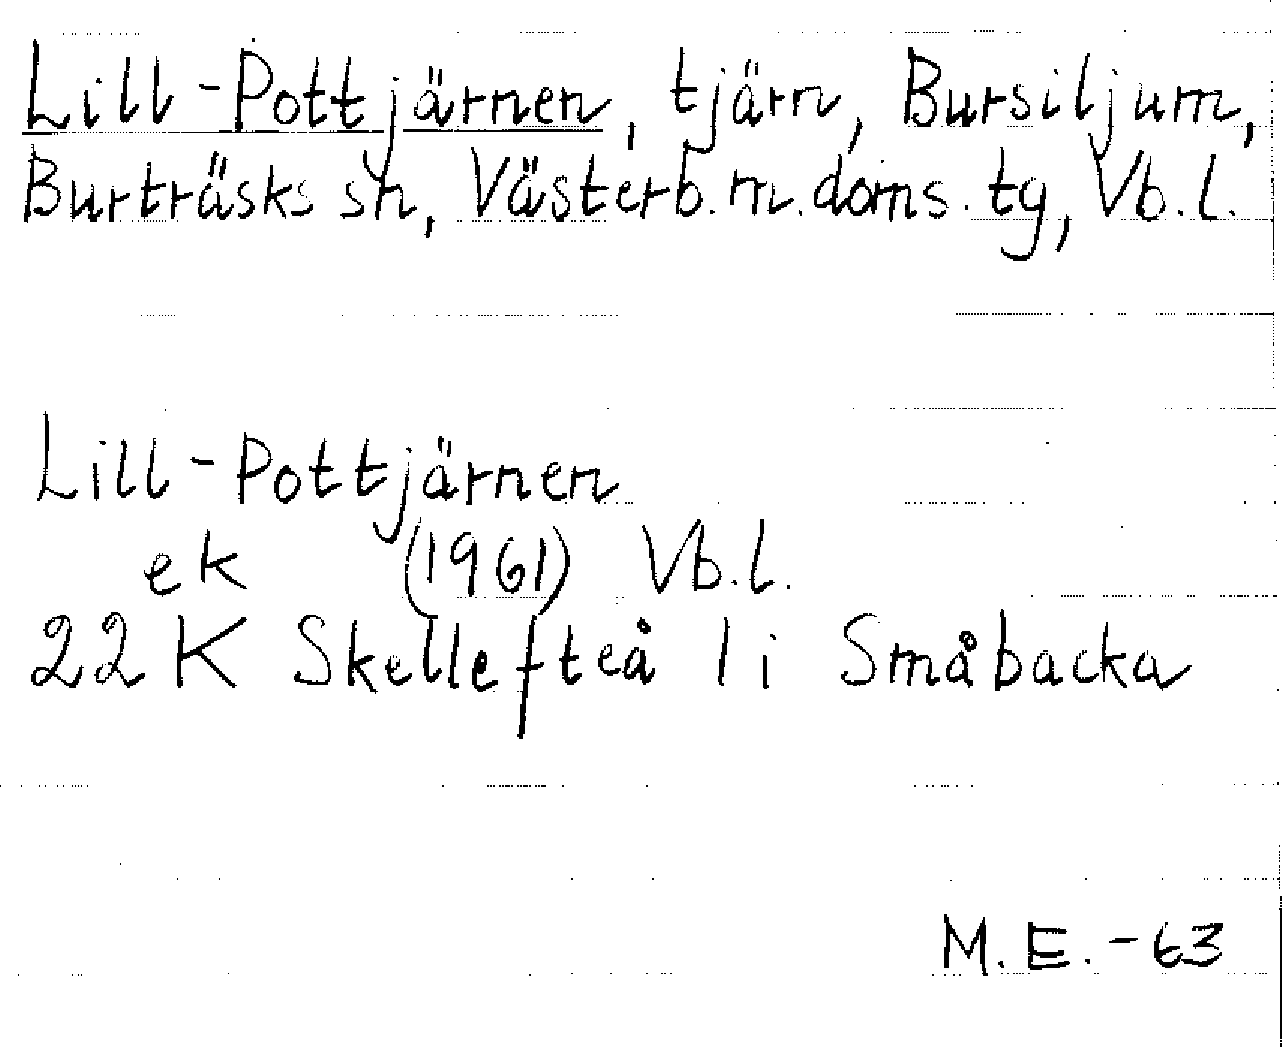 Lill-Pottjärnen, tjärn, Bursiljum,
Burträsks sn, Västerb.m.doms.tg, Vb.l.
Lill-Pottjärnen
ek (1961) Vb.l.
22 K Skellefteå 1 i Småbacka
M.E.-63